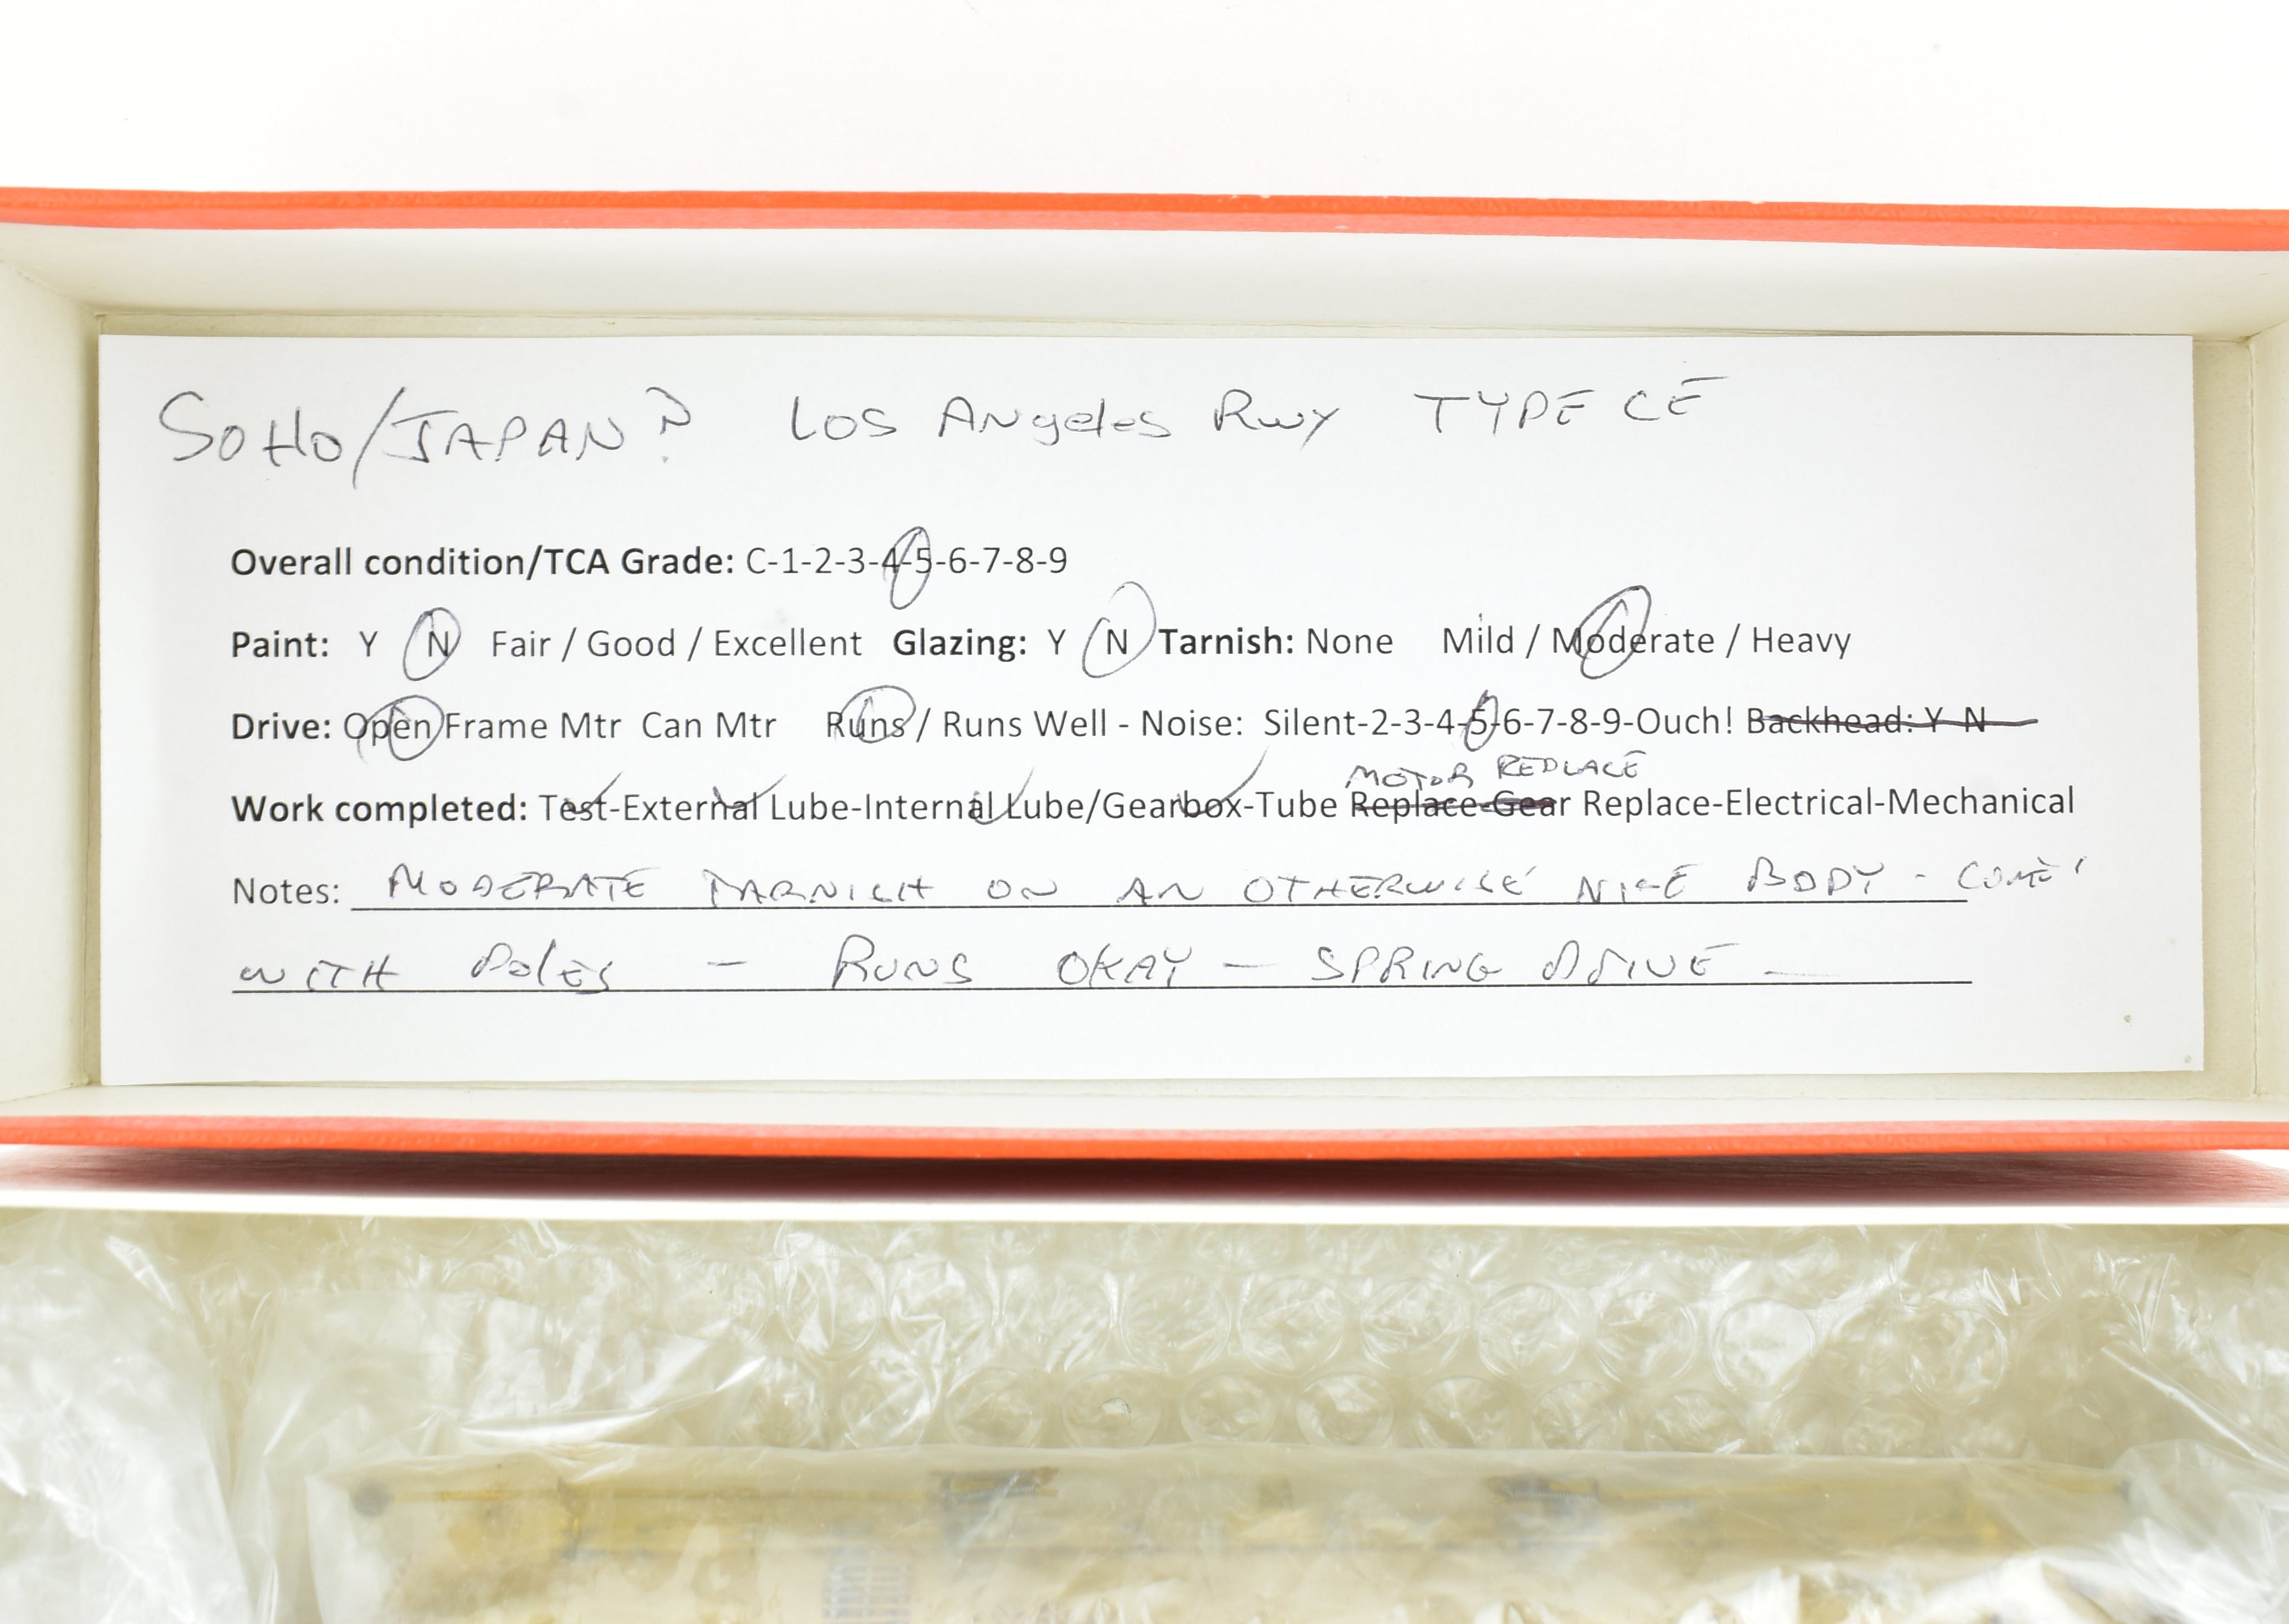 SoHo/JAPAN? Los Angeles Rwy TYPE CE
Overall condition/TCA Grade: C-1-2-3-4-5-6-7-8-9
Paint: Y N Fair / Good / Excellent Glazing: Y N Tarnish: None Mild / Moderate / Heavy
Drive: Open Frame Mtr Can Mtr Runs / Runs Well - Noise: Silent-2-3-4-5-6-7-8-9-Ouch! Backhead: Y N
MOTOR REPLACE
Work completed: Test-External Lube-Internal Lube/Gearbox-Tube Replace-Gear Replace-Electrical-Mechanical
Notes: MODERATE TARNISH ON AN OTHERWISE NICE BODY - COMES
WITH POLES - RUNS OKAY - SPRING DRIVE -